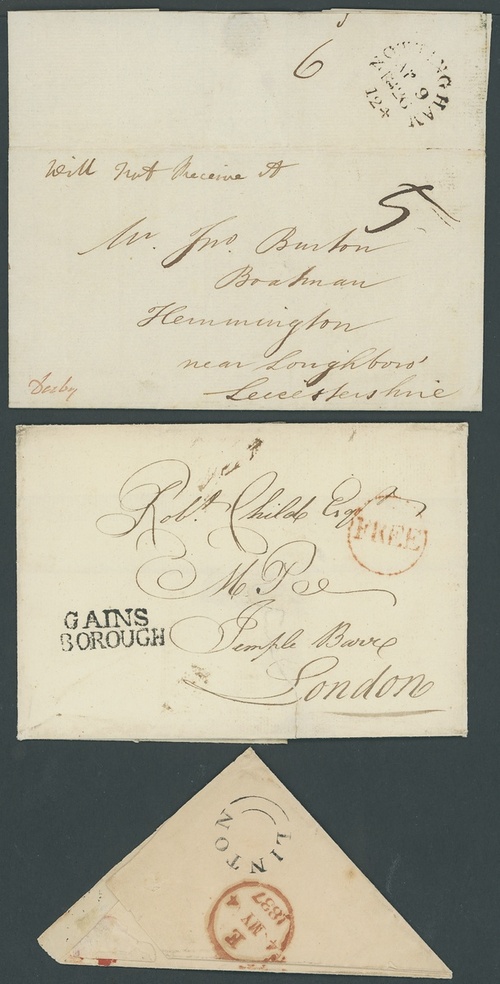 6
NOTTINGHAM
AP 9
1826
124
Will Not Receive it
5
Mr. Jno. Burton
Boatman
Hemmington
near Loughboro'
Leicestershire
Derby
Robt. Child Esqr
FREE
M.P.
GAINS
BOROUGH
Temple Barr
London
LINTON
E
4 MY 4
1837